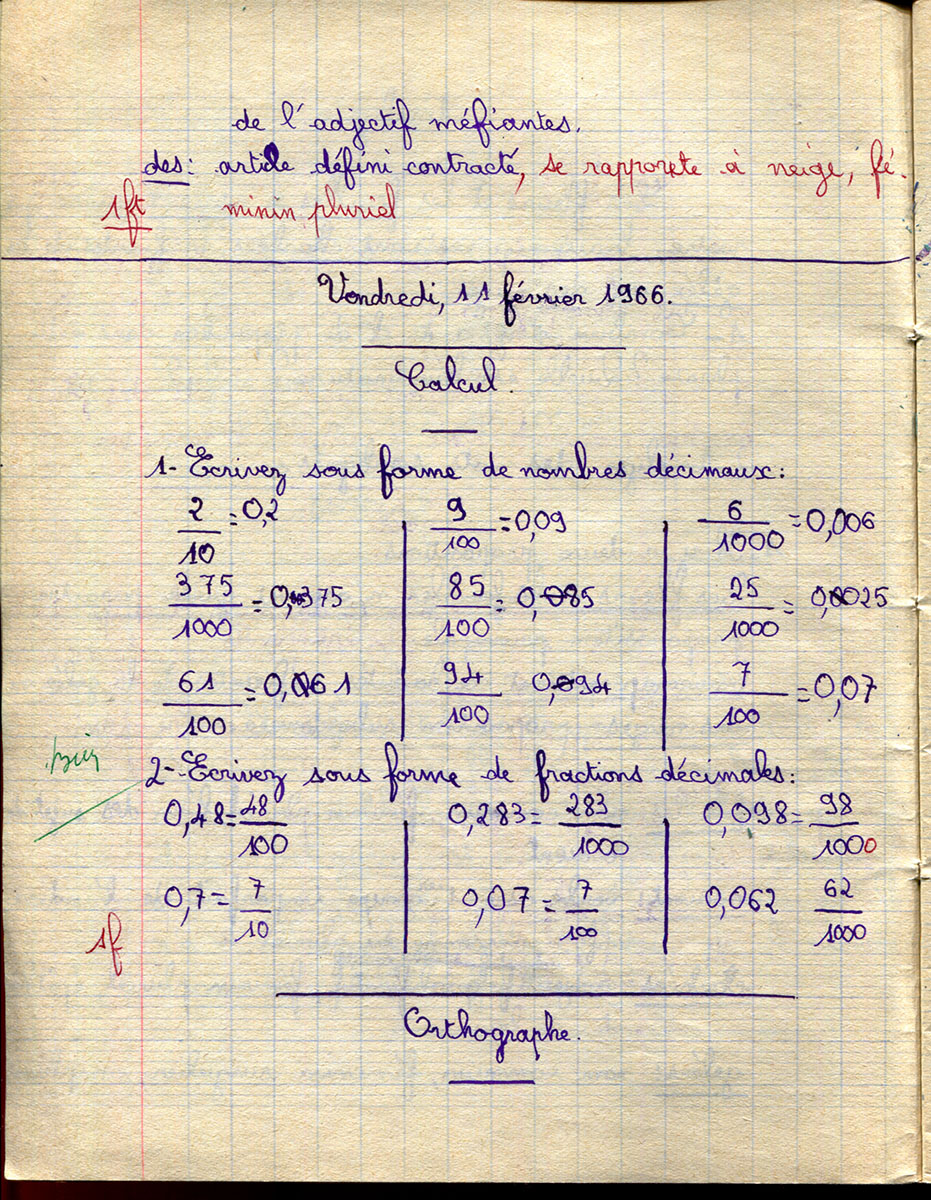 de l'adjectif méfiantes.
des: article défini contracté, se rapporte à neige, fé-
1ft minin pluriel
Vendredi, 11 février 1966.
Calcul.
1- Ecrivez sous forme de nombres décimaux:
2/10 = 0,2 9/100 = 0,09 6/1000 = 0,006
375/1000 = 0,375 85/100 = 0,85 25/1000 = 0,025
61/100 = 0,61 94/100 0,94 7/100 = 0,07
2- Ecrivez sous forme de fractions décimales:
0,48 = 48/100 0,283 = 283/1000 0,098 = 98/1000
0,7 = 7/10 0,07 = 7/100 0,062 62/1000
1f
Orthographe.